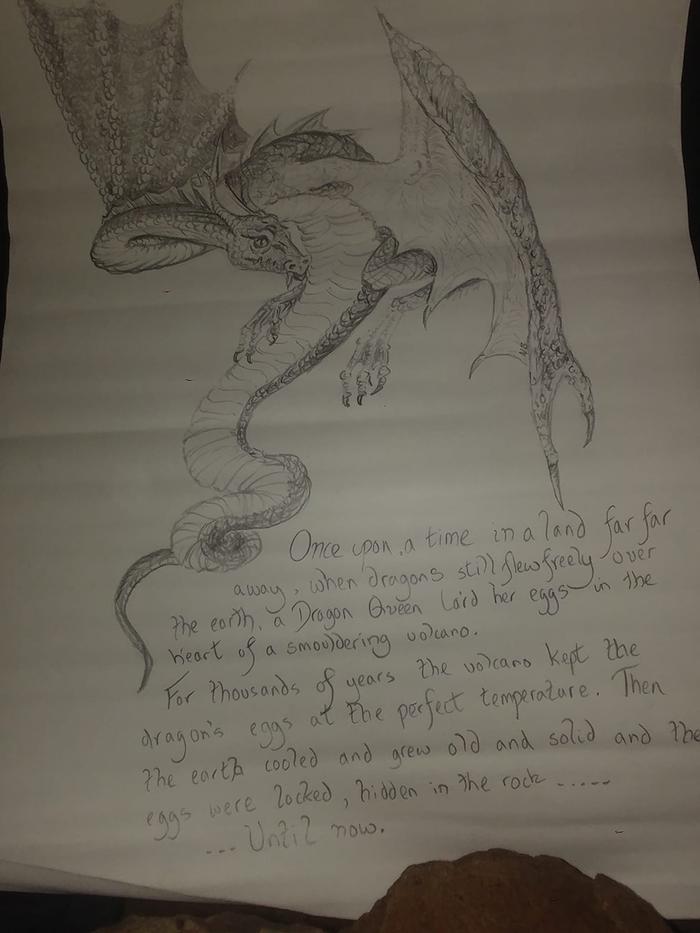 Once upon a time in a land far far
away, when dragons still flew freely over
the earth, a Dragon Queen laid her eggs in the
heart of a smouldering volcano.
For thousands of years the volcano kept the
dragon's eggs at the perfect temperature. Then
the earth cooled and grew old and solid and the
eggs were locked, hidden in the rock .....
... Until now.